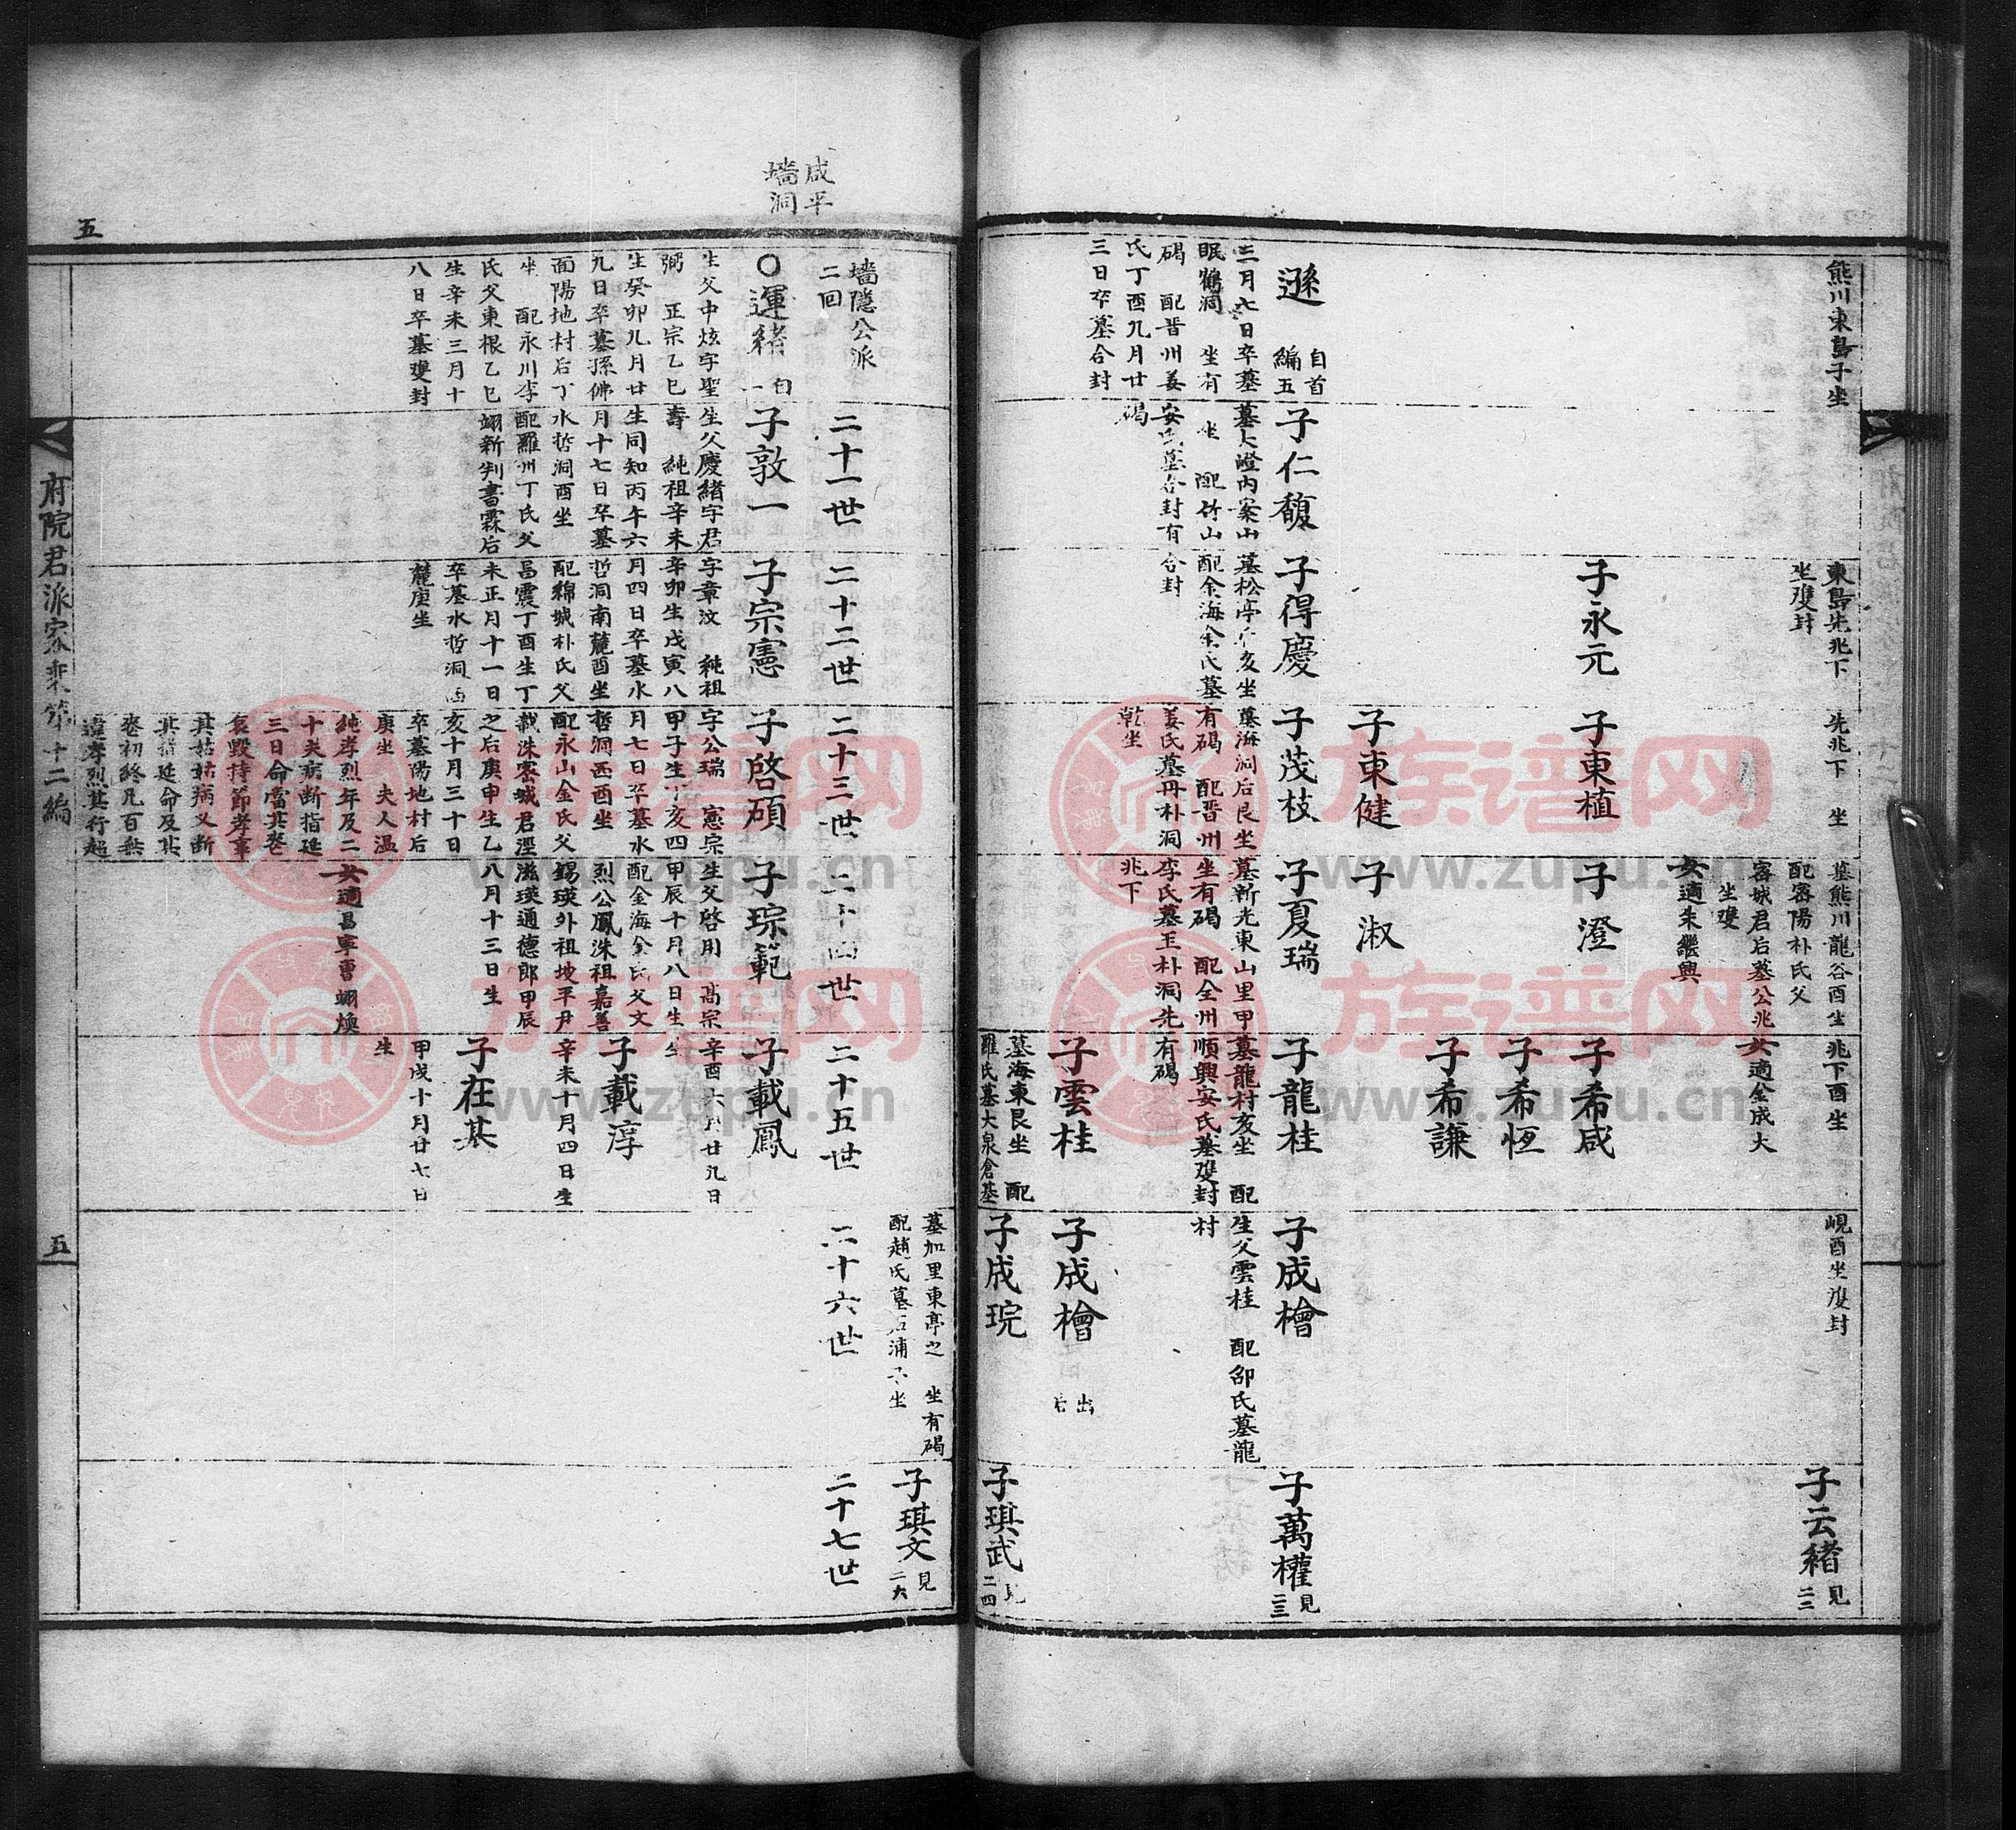 熊川東島子坐
東島先兆下
坐雙封
子永元
先兆下　坐
子東植
子東健
墓熊川龍谷酉坐
配密陽朴氏父
密城君后墓公兆
坐雙
女適朱繼興
子澄
子淑
兆下酉坐
女適金成大
子希咸
子希恆
子希謙
峴酉坐雙封
子云緒 見二二
遜 自首編五
三月七日卒墓
眠鶴洞　坐有
碣　配晋州姜
氏丁酉九月廿
三日卒墓合封
子仁馥
墓大澄內案山
坐　配竹山
安氏墓合封有
碣
子得慶
墓松亭亥坐
配金海金氏墓
合封
子茂枝
墓海洞后艮坐
有碣　配晋州
姜氏墓丹朴洞
乾坐
子夏瑞
墓新光東山里甲
坐有碣　配全州
李氏墓玉朴洞先
兆下
子龍桂
墓龍村亥坐　配
順興安氏墓雙封
有碣
子雲桂
墓海東艮坐　配
羅氏墓大泉倉基
子成檜
生父雲桂　配邵氏墓龍
村
子成檜 出后
子成琓
子萬權 見二三
子琪武 見二四
墓加里東亭之　坐有碣
配趙氏墓石浦子坐
子琪文 見二六
咸平
墻洞
墻隱公派
二回
二十一世
二十二世
二十三世
二十四世
二十五世
二十六世
二十七世
○運緒
生父中炫字聖
弼　正宗乙巳
生癸卯九月廿
九日卒墓孫佛
面陽地村后丁
坐　配永川李
氏父東根乙巳
生辛未三月十
八日卒墓雙封
子敦一
生父慶緒字君
壽　純祖辛未
生同知丙午六
月十七日卒墓
水哲洞酉坐
配羅州丁氏父
翊新判書霖后
子宗憲
字章汶　純祖
辛卯生戊寅八
月四日卒墓水
哲洞南麓酉坐
配綿城朴氏父
昌震丁酉生丁
未正月十一日
卒墓水哲洞
麓庚坐
子啓碩
字公瑞　憲宗
甲子生丁亥四
月七日卒墓水
哲洞西酉坐
配永山金氏父
載洙密城君涇
之后庚申生乙
亥十月三十日
卒墓陽地村后
庚坐　夫人溫
純孝烈年及二
十夫病断指延
三日命當其喪
哀毀持節孝事
其姑姑病又斷
其指延命及其
喪初終凡百無
違孝烈其行超
子琮範
生父啓用　高宗
甲辰十月八日生
配金海金氏父文
烈公鳳洙祖嘉善
錫瑛外祖坡平尹
滋瑛通德郎甲辰
八月十三日生
女適昌寧曺翊煥
子載鳳
辛酉六月廿九日
生
子載淳
辛未十月四日生
子在淇
甲戌十月廿七日
生
五
府院君派家乘第十二編
五
族谱网
www.zupu.cn
族谱网
www.zupu.cn
族谱网
www.zupu.cn
族谱网
www.zupu.cn